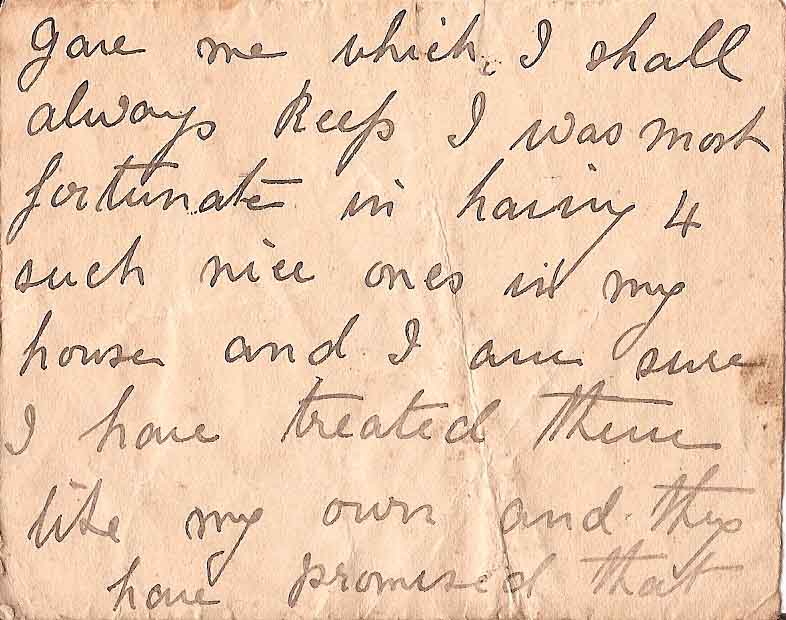 gave me which I shall
always keep I was most
fortunate in having 4
such nice ones in my
house and I am sure
I have treated them
like my own and they
have promised that